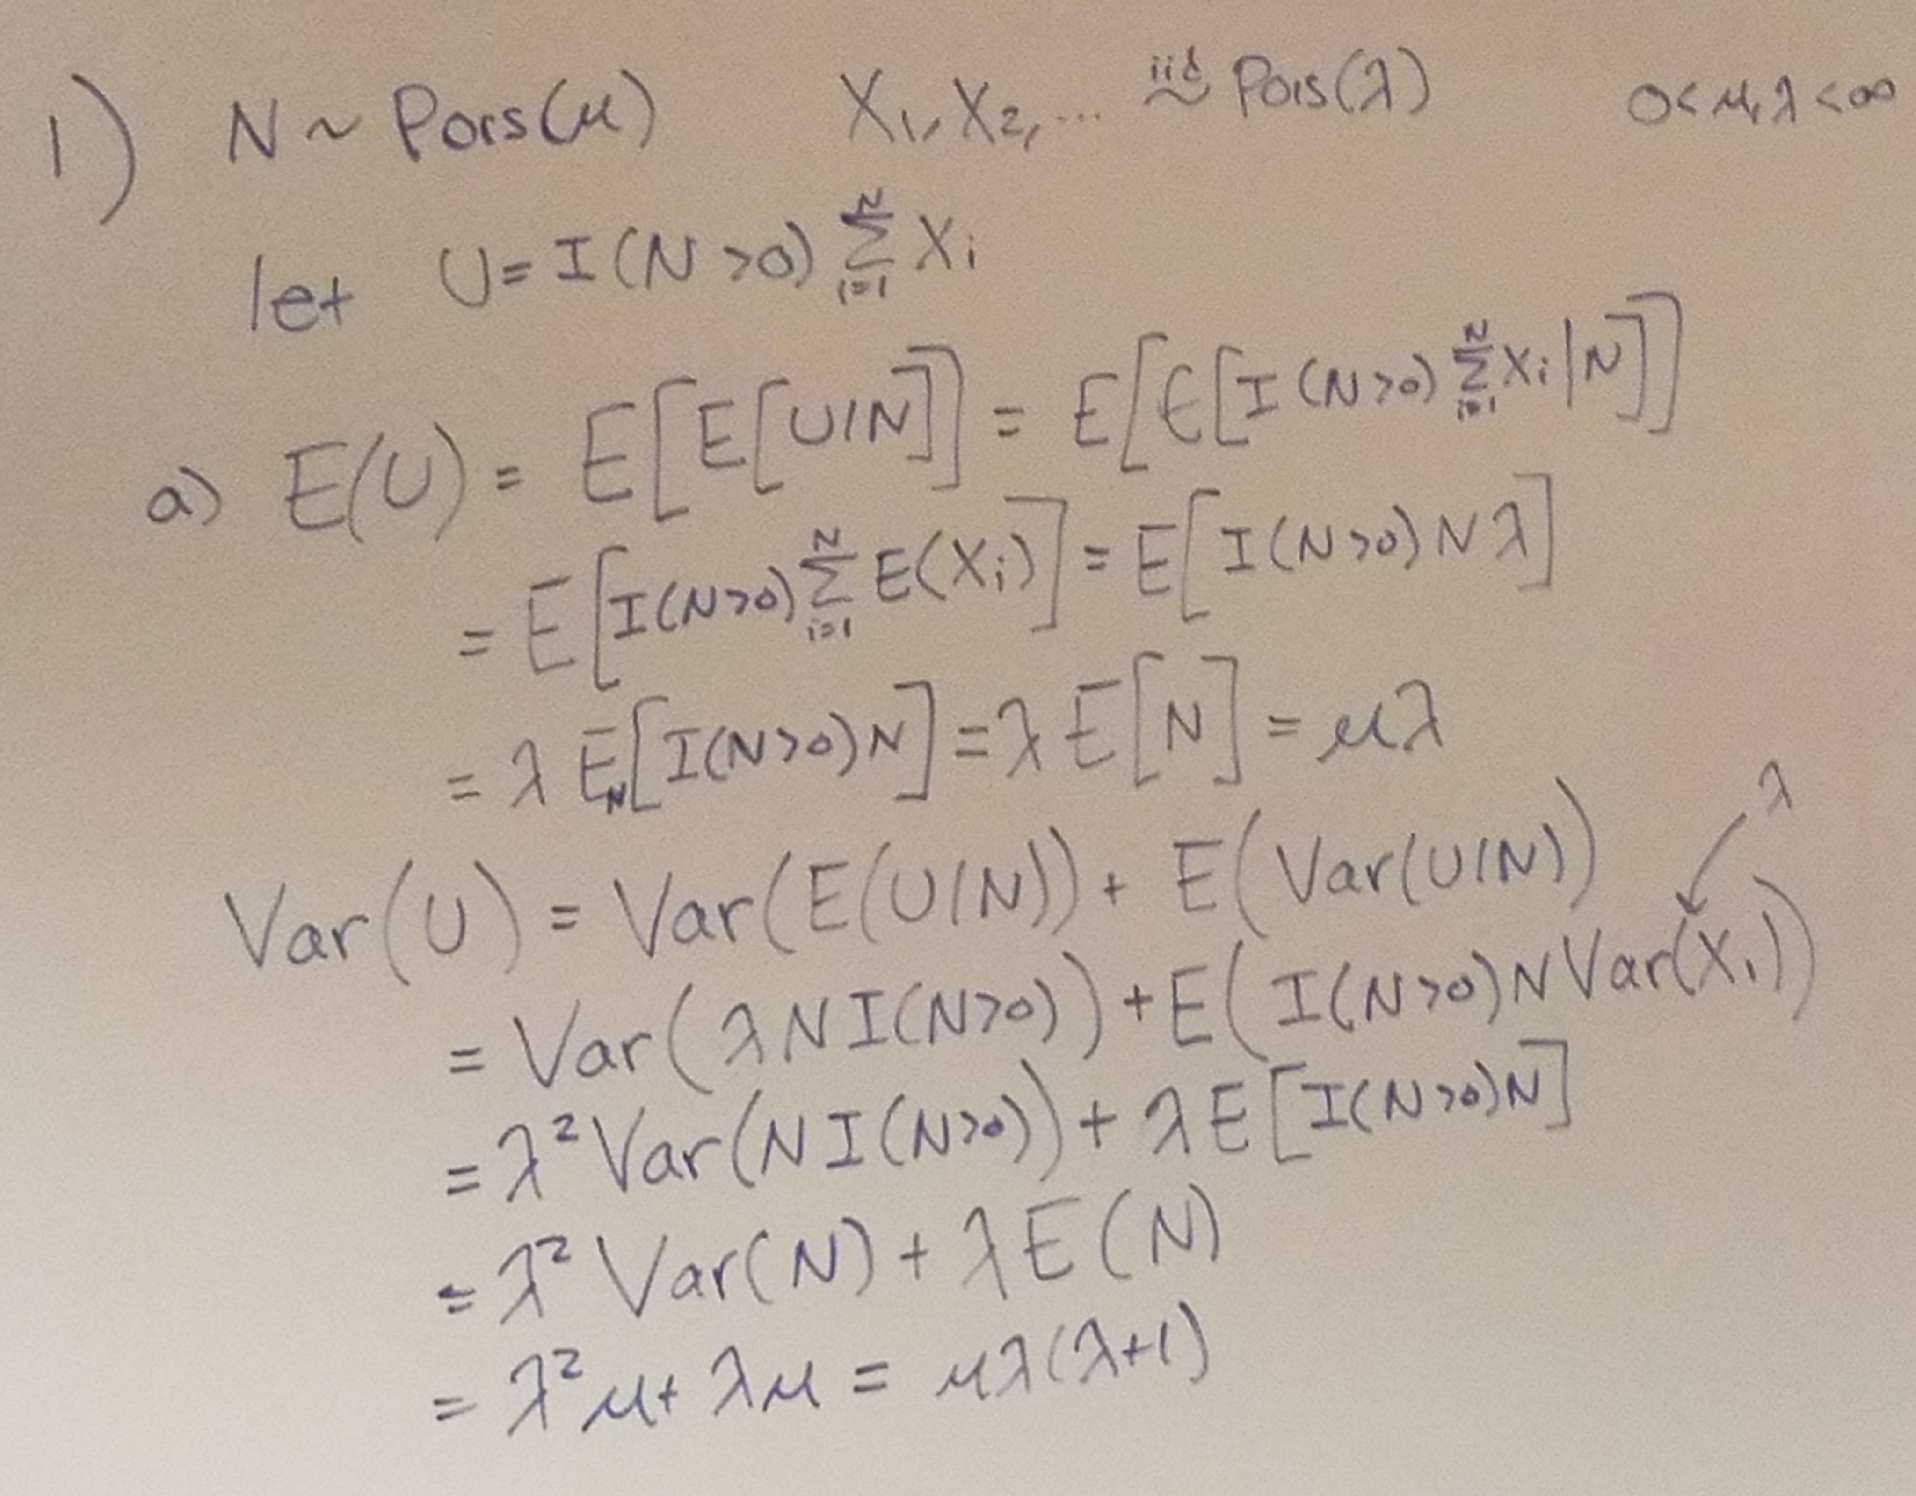 1) N ~ Pois(μ) X₁, X₂, ... iid ~ Pois(λ) 0 < μ, λ < ∞
let U = I(N>0) ∑_{i=1}^{N} X_i
a) E(U) = E[E[U|N]] = E[E[I(N>0) ∑_{i=1}^{N} X_i | N]]
= E[I(N>0) ∑_{i=1}^{N} E(X_i)] = E[I(N>0) N λ]
= λ E_N[I(N>0) N] = λ E[N] = μλ
Var(U) = Var(E(U|N)) + E(Var(U|N)) λ
= Var(λ N I(N>0)) + E(I(N>0) N Var(X₁))
= λ² Var(N I(N>0)) + λ E[I(N>0) N]
= λ² Var(N) + λ E(N)
= λ² μ + λμ = μλ(λ+1)